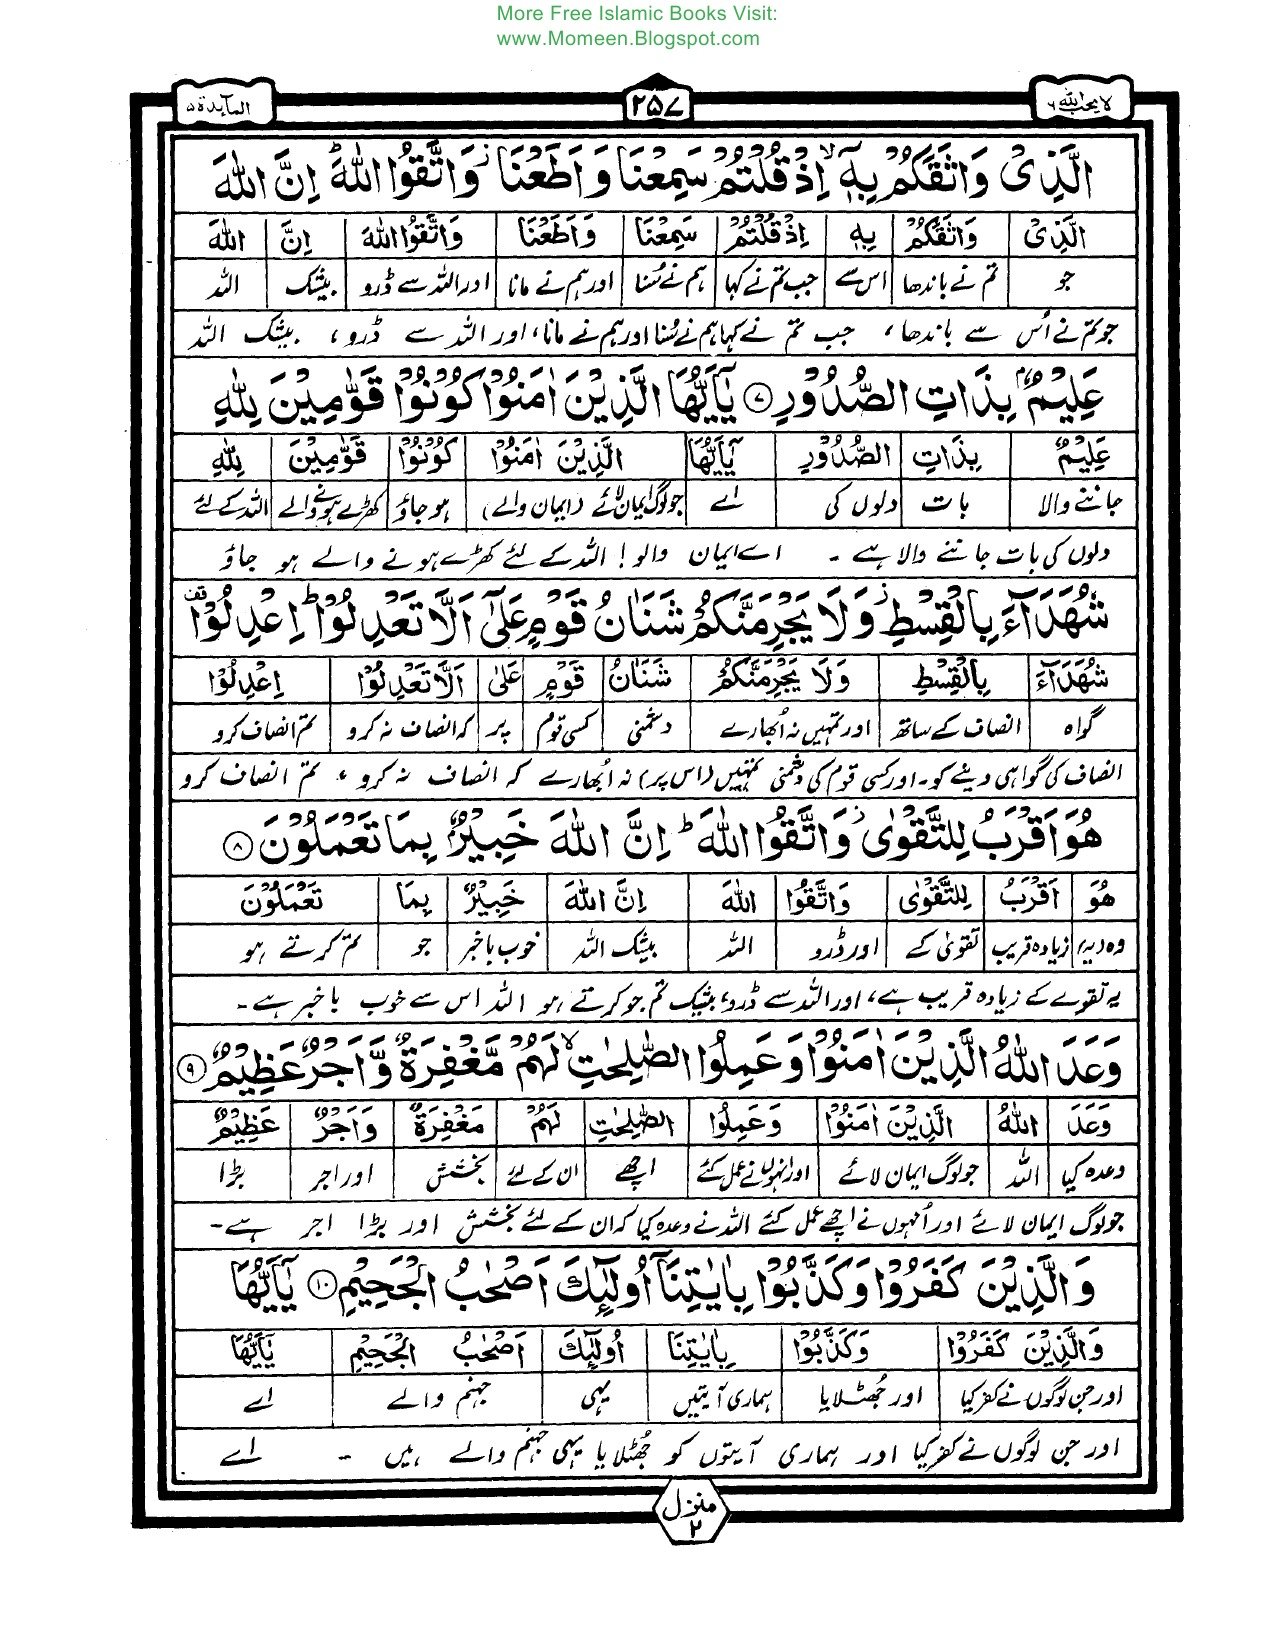 More Free Islamic Books Visit:
www.Momeen.Blogspot.com
لا يحب الله ٦
٢٥٧
المآىدة ٥
الَّذِىْ وَاثَقَكُمْ بِهٖٓ ۙ اِذْ قُلْتُمْ سَمِعْنَا وَاَطَعْنَا ۡ وَاتَّقُوا اللّٰهَ ؕ اِنَّ اللّٰهَ
الَّذِىْ وَاثَقَكُمْ بِهٖٓ اِذْ قُلْتُمْ سَمِعْنَا وَاَطَعْنَا وَاتَّقُوا اللّٰهَ اِنَّ اللّٰهَ
جو تم نے باندھا اس سے جب تم نے کہا ہم نے سُنا اور ہم نے مانا اور اللہ سے ڈرو بیشک اللہ
جو تم نے اُس سے باندھا، جب تم نے کہا ہم نے سُنا اور ہم نے مانا، اور اللہ سے ڈرو، بیشک اللہ
عَلِيْمٌۢ بِذَاتِ الصُّدُوْرِ ۷ يٰۤاَيُّهَا الَّذِيْنَ اٰمَنُوْا كُوْنُوْا قَوّٰمِيْنَ لِلّٰهِ
عَلِيْمٌۢ بِذَاتِ الصُّدُوْرِ يٰۤاَيُّهَا الَّذِيْنَ اٰمَنُوْا كُوْنُوْا قَوّٰمِيْنَ لِلّٰهِ
جاننے والا بات دلوں کی اے جو لوگ ایمان لائے (ایمان والے) ہو جاؤ کھڑے ہونے والے اللہ کے لئے
دلوں کی بات جاننے والا ہے۔ اے ایمان والو! اللہ کے لئے کھڑے ہونے والے ہو جاؤ
شُهَدَآءَ بِالْقِسْطِ ۡ وَلَا يَجْرِمَنَّكُمْ شَنَاٰنُ قَوْمٍ عَلٰٓى اَلَّا تَعْدِلُوْا ؕ اِعْدِلُوْا ۫قف
شُهَدَآءَ بِالْقِسْطِ وَلَا يَجْرِمَنَّكُمْ شَنَاٰنُ قَوْمٍ عَلٰٓى اَلَّا تَعْدِلُوْا اِعْدِلُوْا
گواہ انصاف کے ساتھ اور تمہیں نہ اُبھارے دشمنی کسی قوم پر کہ انصاف نہ کرو تم انصاف کرو
انصاف کی گواہی دینے کو۔ اور کسی قوم کی دشمنی تمہیں (اس پر) نہ اُبھارے کہ انصاف نہ کرو، تم انصاف کرو
هُوَ اَقْرَبُ لِلتَّقْوٰى ۡ وَاتَّقُوا اللّٰهَ ؕ اِنَّ اللّٰهَ خَبِيْرٌۢ بِمَا تَعْمَلُوْنَ ۸
هُوَ اَقْرَبُ لِلتَّقْوٰى وَاتَّقُوا اللّٰهَ اِنَّ اللّٰهَ خَبِيْرٌۢ بِمَا تَعْمَلُوْنَ
وہ (یہ) زیادہ قریب تقویٰ کے اور ڈرو اللہ بیشک اللہ خوب باخبر جو تم کرتے ہو
یہ تقوے کے زیادہ قریب ہے، اور اللہ سے ڈرو، بیشک تم جو کرتے ہو اللہ اس سے خوب باخبر ہے۔
وَعَدَ اللّٰهُ الَّذِيْنَ اٰمَنُوْا وَعَمِلُوا الصّٰلِحٰتِ ۙ لَهُمْ مَّغْفِرَةٌ وَّاَجْرٌ عَظِيْمٌ ۹
وَعَدَ اللّٰهُ الَّذِيْنَ اٰمَنُوْا وَعَمِلُوا الصّٰلِحٰتِ لَهُمْ مَّغْفِرَةٌ وَاَجْرٌ عَظِيْمٌ
وعدہ کیا اللہ جو لوگ ایمان لائے اور انہوں نے عمل کئے اچھے ان کے لئے بخشش اور اجر بڑا
جو لوگ ایمان لائے اور اُنہوں نے اچھے عمل کئے اللہ نے وعدہ کیا کہ ان کے لئے بخشش اور بڑا اجر ہے۔
وَالَّذِيْنَ كَفَرُوْا وَكَذَّبُوْا بِاٰيٰتِنَآ اُولٰٓئِكَ اَصْحٰبُ الْجَحِيْمِ ۱۰ يٰۤاَيُّهَا
وَالَّذِيْنَ كَفَرُوْا وَكَذَّبُوْا بِاٰيٰتِنَا اُولٰٓئِكَ اَصْحٰبُ الْجَحِيْمِ يٰۤاَيُّهَا
اور جن لوگوں نے کفر کیا اور جُھٹلایا ہماری آیتیں یہی جہنم والے اے
اور جن لوگوں نے کفر کیا اور ہماری آیتوں کو جُھٹلایا یہی جہنم والے ہیں۔ اے
منزل
٢